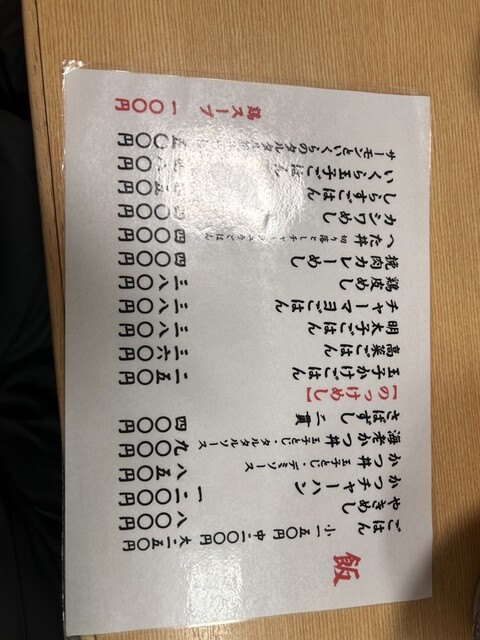 飯
ごはん 小一五〇円 中二〇〇円 大二五〇円
やきめし 八〇〇円
かつチャーハン 一二〇〇円
かつ丼 玉子とじ・デミソース 八五〇円
海老かつ丼 玉子とじ・タルタルソース 九〇〇円
さばずし 二貫 四〇〇円
【のっけめし】
玉子かけごはん 二五〇円
高菜ごはん 三六〇円
明太子ごはん 三八〇円
チャーマヨごはん 三八〇円
鶏皮めし 三八〇円
挽肉カレーめし 四〇〇円
へた丼 切り落としチャーシューごはん 四〇〇円
カシワめし 四〇〇円
しらすごはん 五〇円
いくら玉子ごはん 八〇円
サーモンといくらのタルタル 〇〇円
鶏スープ 一〇〇円